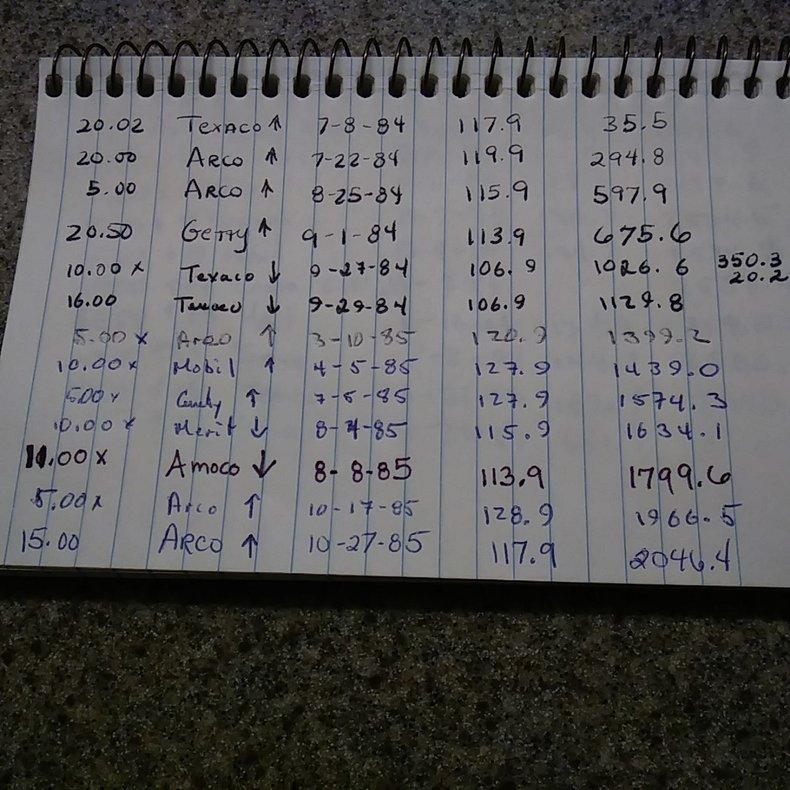 20.02 Texaco ↑ 7-8-84 117.9 35.5
20.00 ARCO ↑ 7-22-84 119.9 294.8
5.00 ARCO ↑ 8-25-84 115.9 597.9
20.50 Getty ↑ 9-1-84 113.9 675.6
10.00 x Texaco ↓ 9-27-84 106.9 1026.6 350.3
20.2
16.00 Texaco ↓ 9-29-84 106.9 1129.8
5.00 x Arco ↑ 3-10-85 120.9 1399.2
10.00 x Mobil ↑ 4-5-85 127.9 1439.0
5.00 x ↑ 7-5-85 127.9 1574.3
10.00 x Merit ↓ 8-4-85 115.9 1634.1
11.00 x Amoco ↓ 8-8-85 113.9 1799.6
5.00 x Arco ↑ 10-17-85 128.9 1966.5
15.00 ARCO ↑ 10-27-85 117.9 2046.4